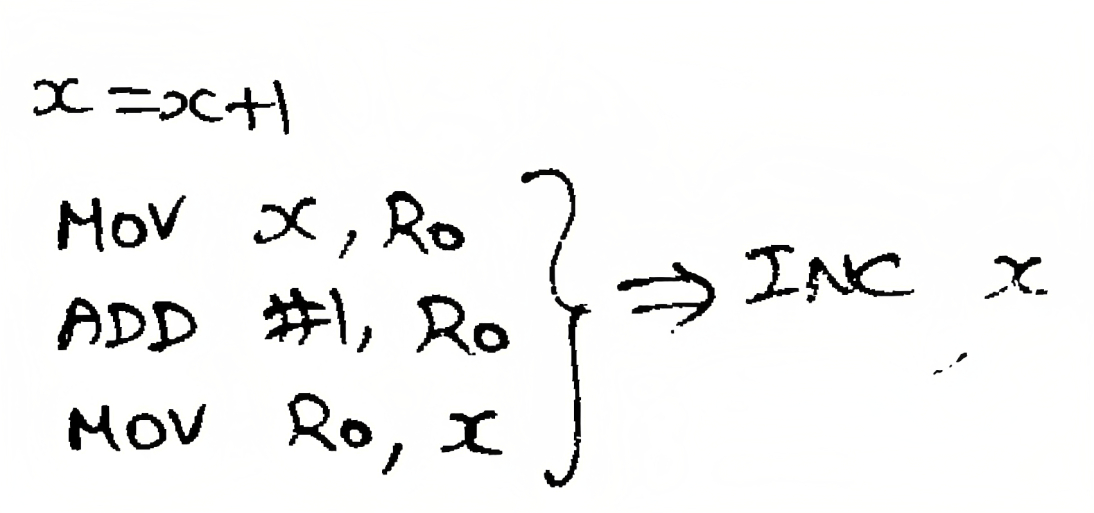 x = x+1
MOV x, R0
ADD #1, R0
MOV R0, x
⇒ INC x